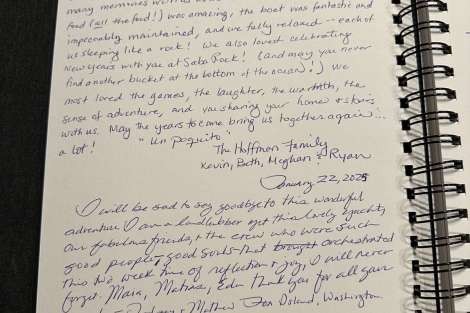 many memories with
food (all the food!) was amazing, the boat was fantastic and
impeccably maintained, and we fully relaxed -- each of
us sleeping like a rock! We also loved celebrating
New years with you at Saba Rock! (and may you never
find another bucket at the bottom of the ocean!) We
most loved the games, the laughter, the warmth, the
sense of adventure, and you sharing your home & stories
with us. May the years to come bring us together again...
a lot!
"Un poquito"
The Hoffman Family
Kevin, Beth, Meghan & Ryan
January 22, 2025
I will be sad to say goodbye to this wonderful
adventure. I am a landlubber yet this lovely yacht,
our fabulous friends, & the crew who were such
good people, good sorts that brought orchestrated
this two week time of reflection & joy, I will never
forget. Mara, Matias, Edu thank you for all your
Mother Dea Island, Washington